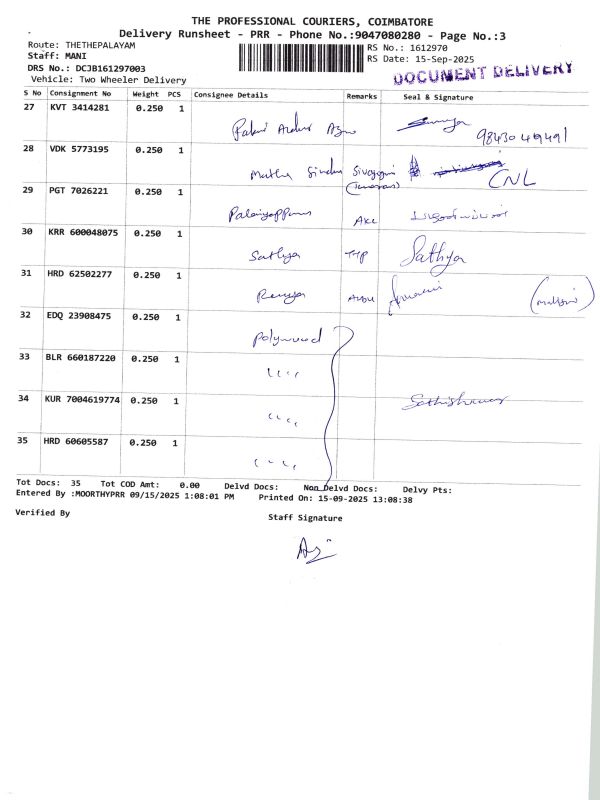 THE PROFESSIONAL COURIERS, COIMBATORE
Delivery Runsheet - PRR - Phone No.:9047080280 - Page No.:3
Route: THETHEPALAYAM
Staff: MANI
DRS No.: DCJB161297003
Vehicle: Two Wheeler Delivery
RS No.: 1612970
RS Date: 15-Sep-2025
DOCUMENT DELIVERY
S No Consignment No Weight PCS Consignee Details Remarks Seal & Signature
27 KVT 3414281 0.250 1
28 VDK 5773195 0.250 1 CNL
29 PGT 7026221 0.250 1
30 KRR 600048075 0.250 1 Sathya TTP Sathya
31 HRD 62502277 0.250 1 Renuga
32 EDQ 23908475 0.250 1 Polywood
33 BLR 660187220 0.250 1 ,,,,
34 KUR 7004619774 0.250 1 ,,,,
35 HRD 60605587 0.250 1 ,,,,
Tot Docs: 35 Tot COD Amt: 0.00 Delvd Docs: Non Delvd Docs: Delvy Pts:
Entered By :MOORTHYPRR 09/15/2025 1:08:01 PM Printed On: 15-09-2025 13:08:38
Verified By
Staff Signature